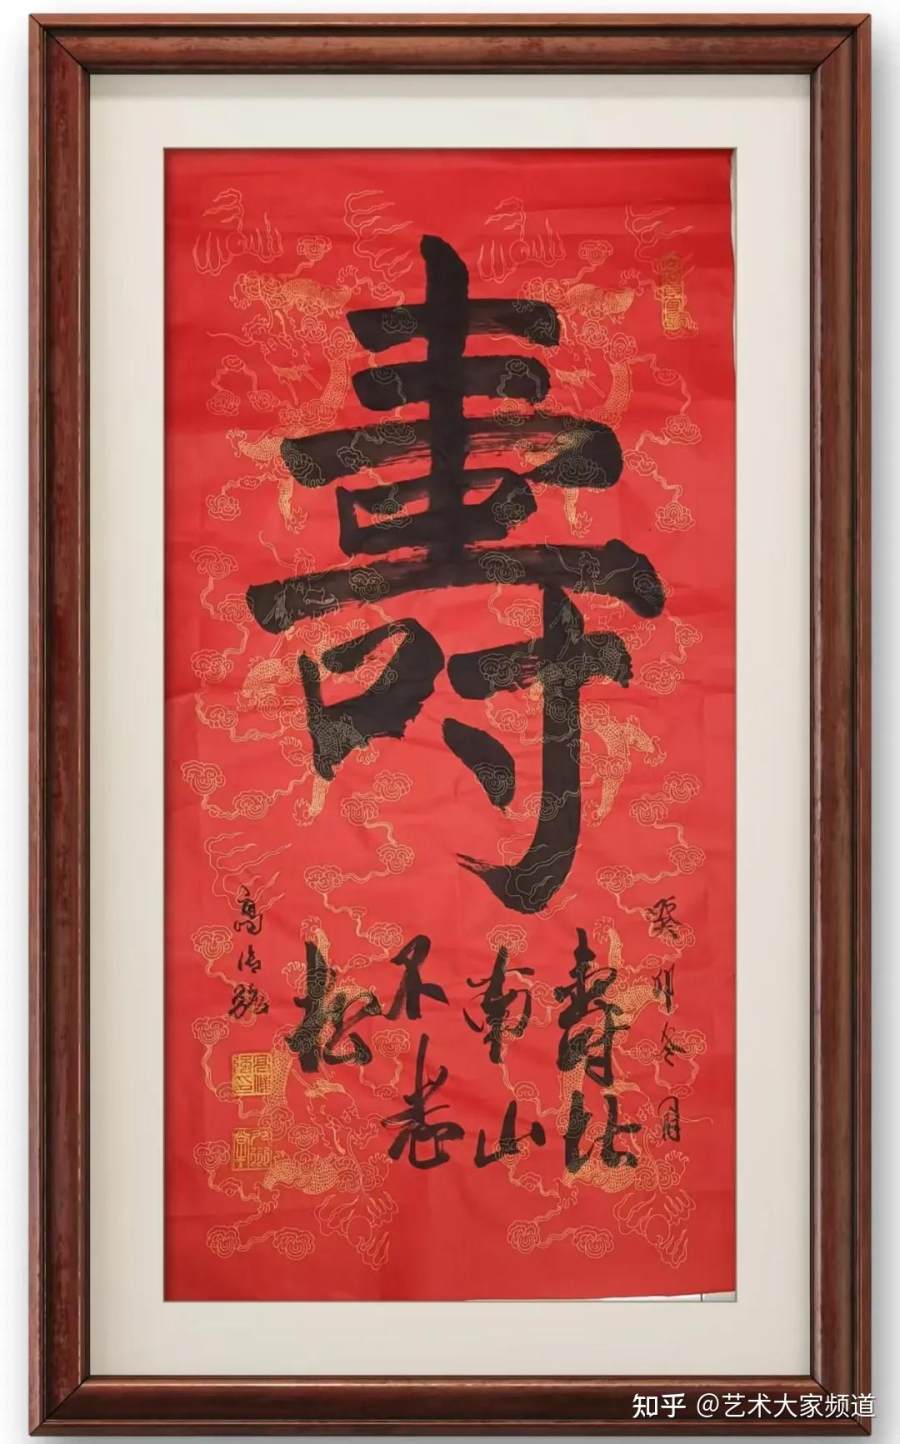 壽
癸卯冬月
壽比
南山
不老
松
高
知乎 @艺术大家频道